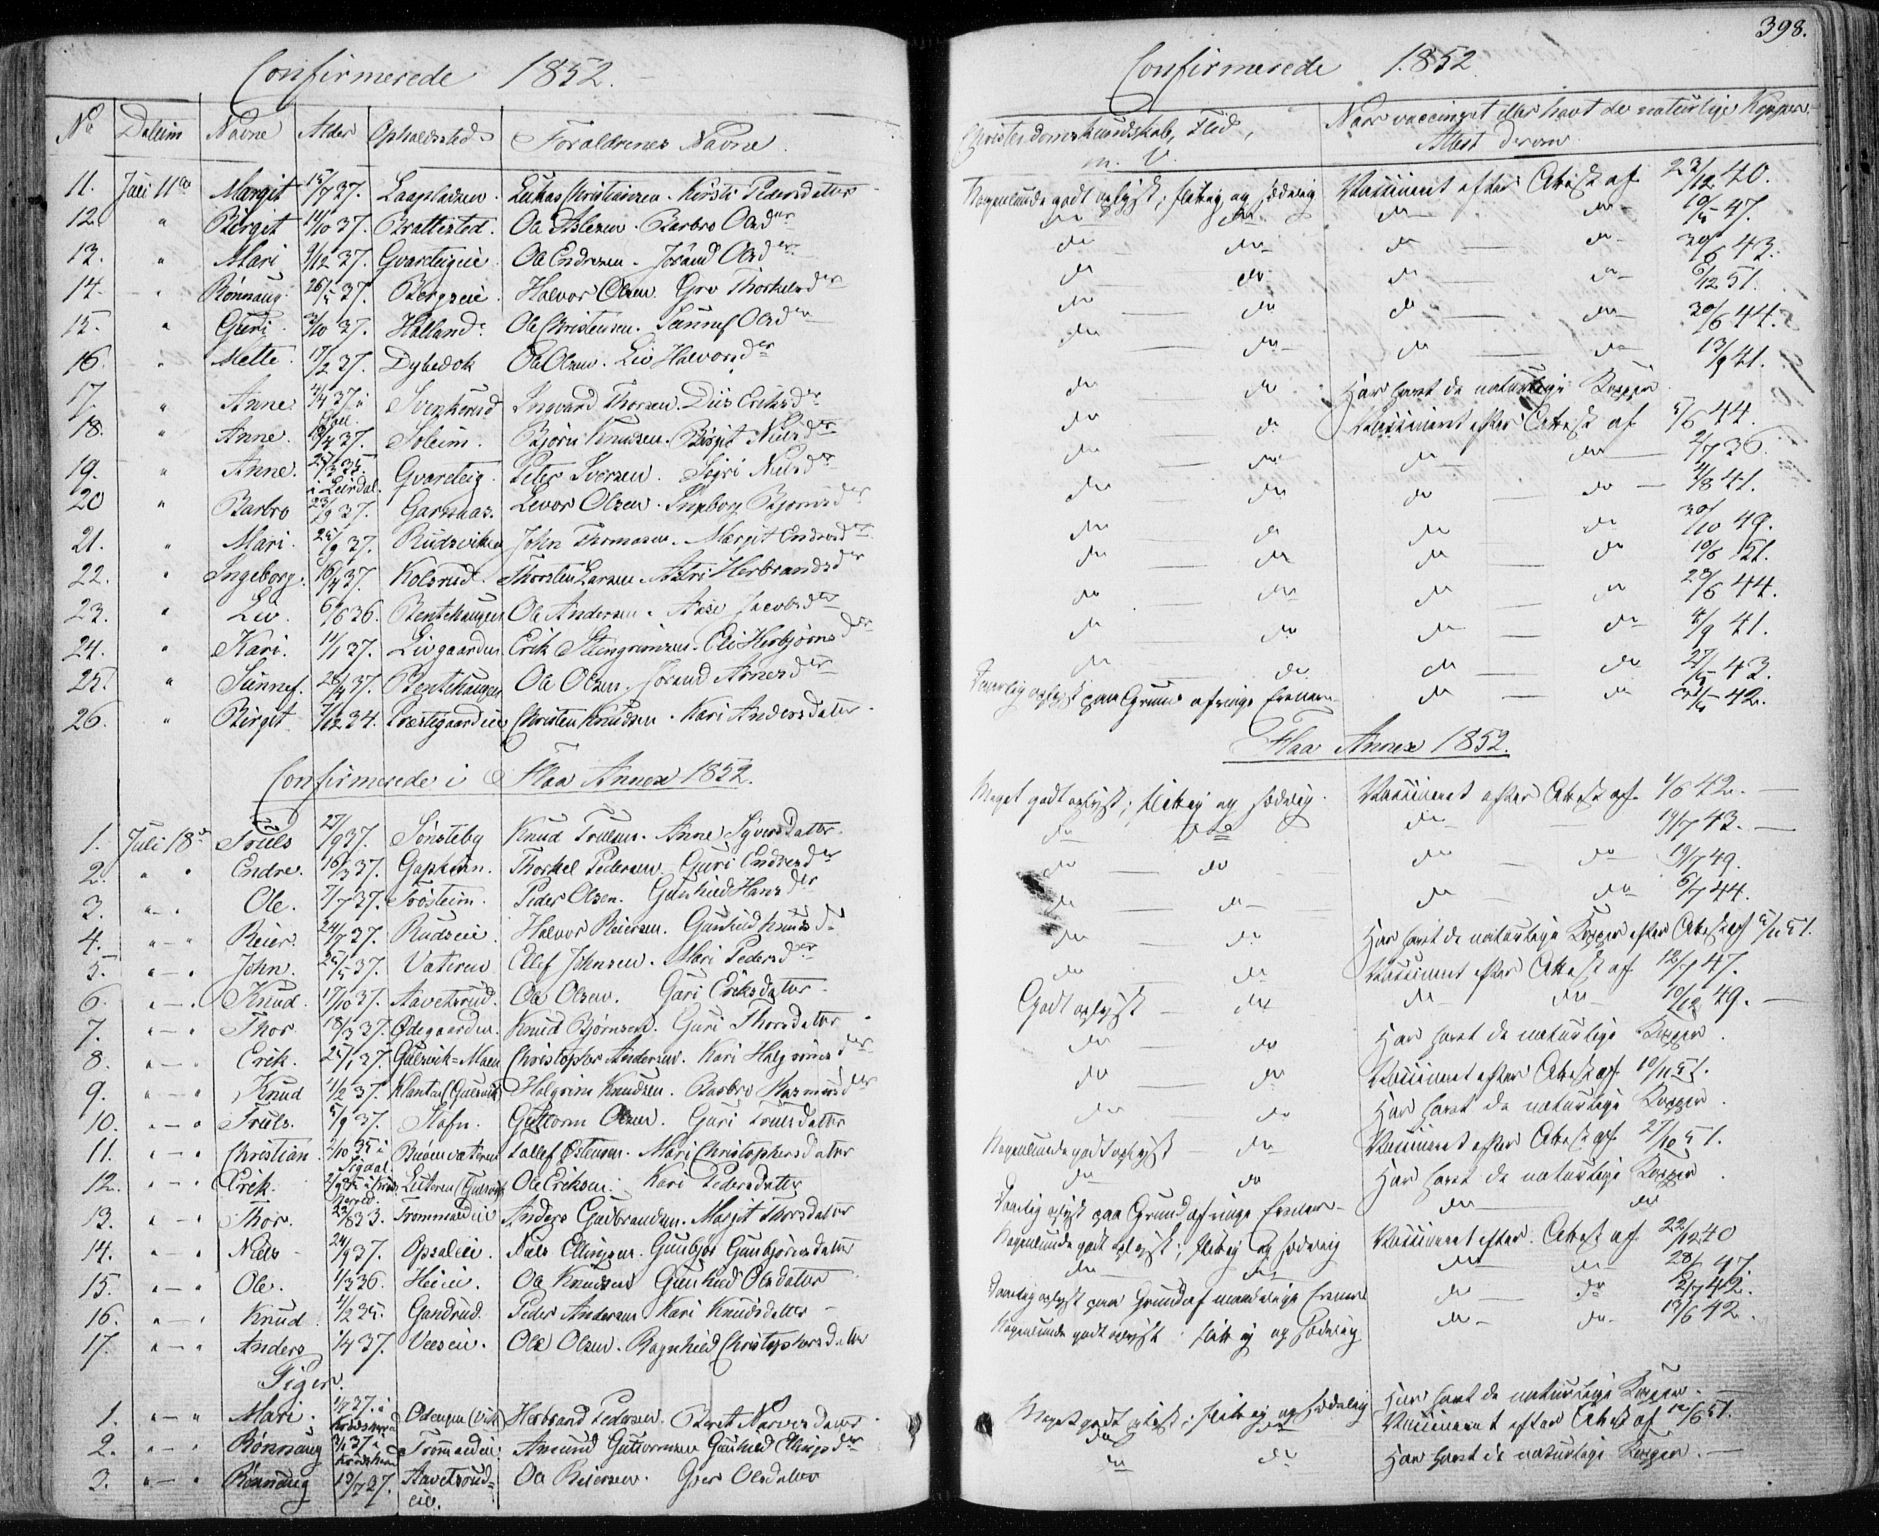 Confirmerede 1852.
No Datum Navne Alder Opholdssted Forældrenes Navne
11. Juli 11te Margit 15/7 37. Lukas Christensen. Kirsti Pedersdatter
12. " Birgit 14/10 37. Brattested. Ole Aslesen. Barbro Olsdtr
13. " Mari 9/12 37. Gvardeigeie Ole Endresen. Jorand Olsdtr
14. " Rønnaug 26/5 37. Bergseie. Halvor Olsen. Gro Thorkelsdr
15. " Guri. 3/10 37. Halland. Ole Christensen. Sünnef Olsdr
16. " Mette. 17/2 37. Dybedok Ole Olsen. Liv Halvorsdr
17. " Anne. 4/4 37 i Svenkerud Ingvard Thorsen. Erichsdr
18. " Anne. 19/4 37. Soleim. Bjørn Knudsen. Birgit Nielsdr
19. " Anne. 35. i Leirdal. Gvardeig. Peter Iversen. Sigri Nielsdr
20 " Barbro 23/9 37. Garnaas. Levor Olsen. Ingeborg Bjørnsdr
21. " Mari. 25/9 37. Rudsviken John Thomasen. Margit Endresdr
22. " Ingeborg. 16/4 37. Kolsrud. Thorsten Larsen. Astri Herbrandsdr
23. " Liv. 6/6 36. Bentehaugen Ole Andersen. Aase Jacobsdr
24. " Kari. 11/1 37. Livgaarden Erik Steingrimsen. Eli Herbjørnsdr
25. " Sünnef. 28/4 37. Bentehaugen Ole Olsen. Jorand Arnesdr
26. " Birgit. 7/12 34. Præstegaardseie Christen Knudsen. Kari Andersdatter.
Confirmerede i Flaa Annex 1852.
1. Juli 18de Truls 27/9 37. Sønsteby Knud Trulsen. Anne Syversdatter.
2. " " Endre. 16/3 37. Gapestin. Thorkel Pedersen. Guri Endresdr
3. " – " Ole. 7/7 37. Trøsteim. Peder Olsen. Gunhild Hansdr
4. " – " Reier. 24/7 37. Rudseie. Halvor Reiersen. Gunhild Knudsd
5. " – " John. 25/5 37. Vateren Ellef Johnsen. Mari Pedersdr
6. " – " Knud. 17/10 37. Aavetsrud. Ole Olsen. Guri Eriksdatter.
7. " – " Thor. 18/3 37. Ødegaarden. Knud Bjørnsen. Guri Thorsdatter
8. " – " Erik. 25/1 37. Gulsvik=Moen Christopher Andersen. Kari Halgrimsdr
9. " – " Knud 11/2 37. Klanten (Gulsvik) Halgrim Knudsen. Barbro Rasmusdr
10. " – " Truls. 5/9 37. Stafn. Guttorm Olsen. Guri Trulsdatter
11. " – " Christian 2/10 35 i Sigdal Tollef Østensen. Mari Christophersdatter
12. " – " Erik. Ole Eriksen. Kari Pedersdatter
13. " – " Thor. 22/8 33. Trommaldeie Anders Gudbrandsen. Margit Thorsdatter
14. " – " Niels 24/9 37. Opsaleie. Niels Ellingsen. Gunbjør Gunbjørnsdatter
15. " – " Ole. 1/3 36. Heieie. Ole Knudsen Gunhild Olsdatter
16. " – " Knud 4/2 35. Gandrud. Peder Andersen Kari Knudsdatter
17. " – " Anders 1/4 37. Veeseie. Ole Olsen. Ragnhild Christophersdatter
Piger.
1. " – " Mari. 37. i Krødshered Herbrand Pedersen. Berit Narvesdatter
2. " – " Rønnaug 3/1 37 i Krødshered Trommaldeie Amund Guttormsen Gunhild Ellingsdr
3. " – " Rønnaug 19/7 37. Aavetsrud=eie. Ole Reiersen. Guri Olsdatter
398.
Confirmerede 1852
Christendomskundskab, Flid, m. V. Naar vaccineret eller havt de naturlige Kopper. Attest derom
Nogenlunde godt oplyst; flittig og sædelig Vaccineret efter Attest af 23/12 40.
do do do do 19/5 47.
do do do do 30/6 43.
do do do do 6/12 51.
do do do do 30/6 44.
do do do do 13/9 41.
do do Har havt de naturlige Kopper
do do Vaccineret efter Attest af 5/6 44.
do do do do 2/7 36.
do do do do 4/8 41.
do do do do 30/10 49.
do do do do 10/6 51.
do do do do 29/6 44.
do do do do 8/9 41.
do do do do 27/5 43.
Daarlig oplyst paa Grund af ringe Evner do do 42.
Flaa Annex 1852.
Meget godt oplyst; flittig og sædelig. Vaccineret efter Attest af 1/6 42. –
do do do 19/7 43. –
do do do do 19/7 49.
do do do do 6/7 44.
do do Har havt de naturlige Kopper efter Attest af 5/11 51.
do do Vaccineret efter Attest af 12/7 47.
Godt oplyst – do do do 10/12 49. –
do do Har havt de naturlige Kopper.
do do Vaccineret efter Attest af 10/11 51.
do do Har havt de naturlige Kopper.
Nogenlunde godt oplyst – do Vaccineret efter Attest af 27/10 51.
do do Har havt de naturlige Kopper.
Daarlig oplyst paa Grund af ringe Evner – do do
Nogenlunde godt oplyst; flittig og sædelig Vaccineret efter Attest af 22/12 40
do do do do 28/6 47.
Daarlig oplyst paa Grund af maadelige Evner do do 2/7 42.
Nogenlunde godt oplyst; flittig og sædelig do do 13/6 42.
Meget godt oplyst; flittig og sædelig Har havt de naturlige Kopper. –
do do Vaccineret efter Attest af 12/6 51.
do do Har havt de naturlige Kopper. –